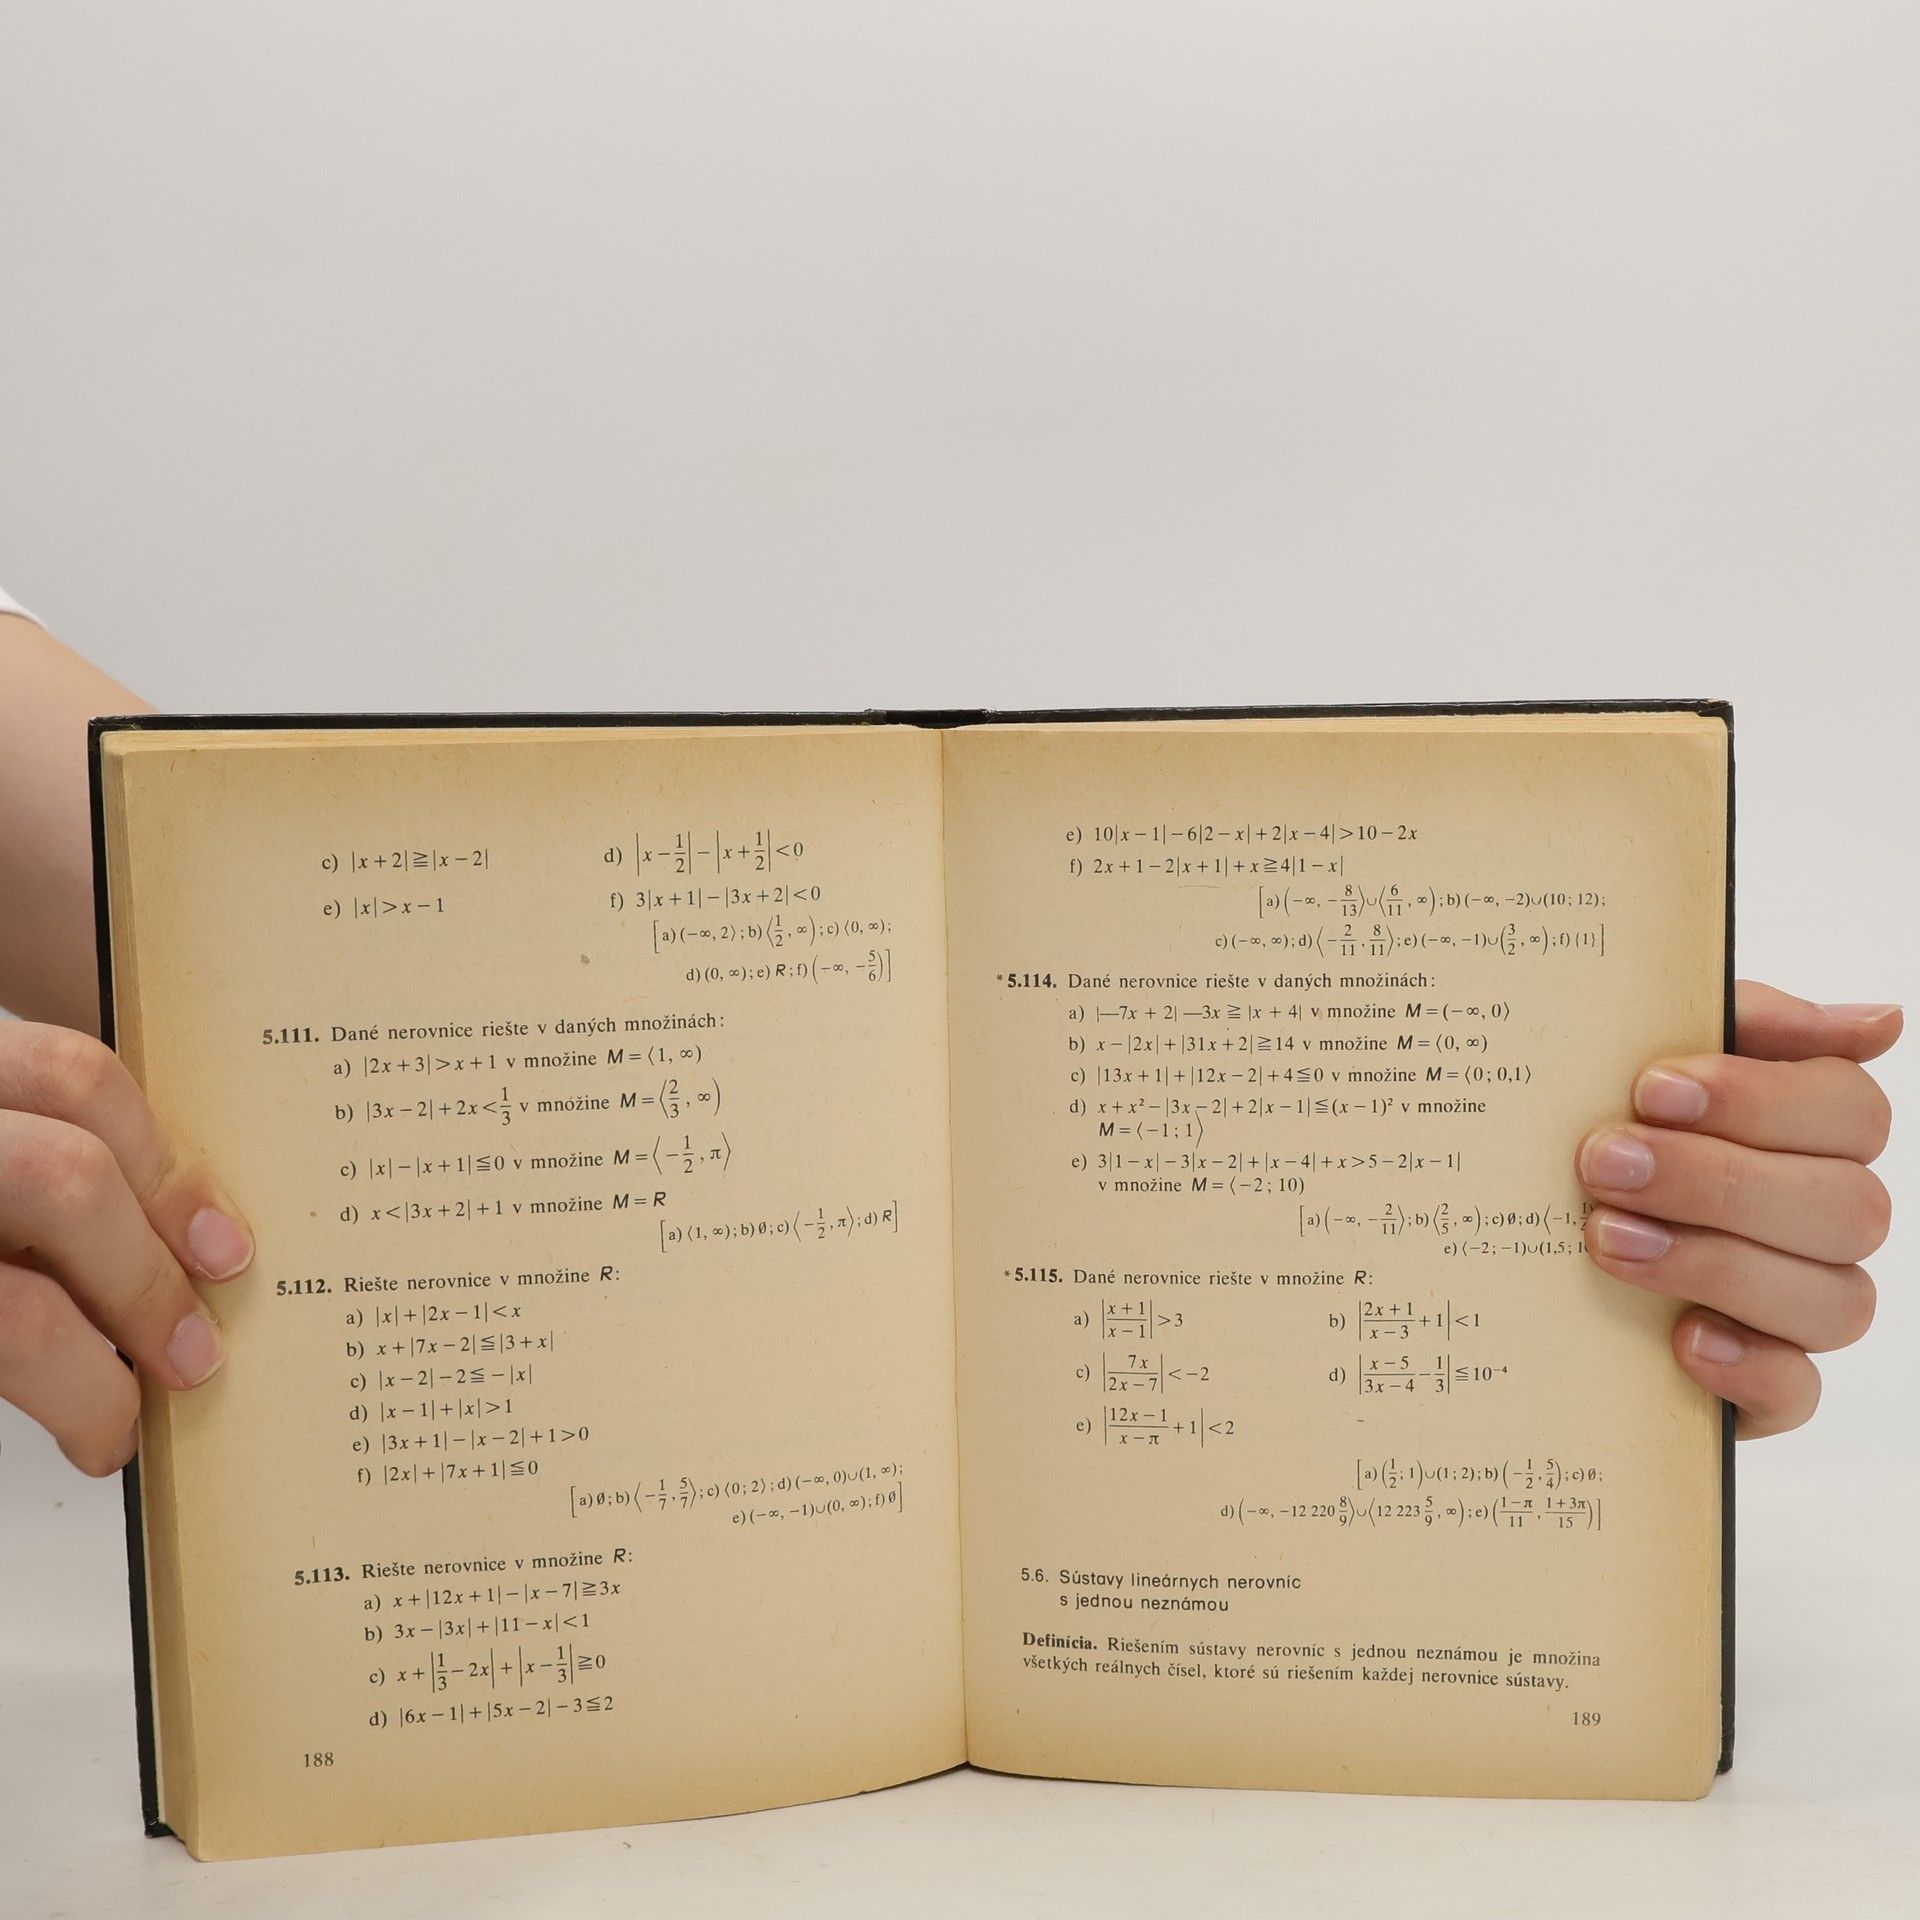 c) |x + 2| ≧ |x − 2|
d) |x − 1/2| − |x + 1/2| < 0
e) |x| > x − 1
f) 3|x + 1| − |3x + 2| < 0
[a) (−∞, 2⟩; b) ⟨1/2, ∞); c) ⟨0, ∞);
d) (0, ∞); e) R; f) (−∞, −5/6)]
5.111. Dané nerovnice riešte v daných množinách:
a) |2x + 3| > x + 1 v množine M = ⟨1, ∞)
b) |3x − 2| + 2x < 1/3 v množine M = ⟨2/3, ∞)
c) |x| − |x + 1| ≦ 0 v množine M = ⟨−1/2, π⟩
d) x < |3x + 2| + 1 v množine M = R
[a) ⟨1, ∞); b) ∅; c) ⟨−1/2, π⟩; d) R]
5.112. Riešte nerovnice v množine R:
a) |x| + |2x − 1| < x
b) x + |7x − 2| ≦ |3 + x|
c) |x − 2| − 2 ≦ − |x|
d) |x − 1| + |x| > 1
e) |3x + 1| − |x − 2| + 1 > 0
f) |2x| + |7x + 1| ≦ 0
[a) ∅; b) ⟨−1/7, 5/7⟩; c) ⟨0; 2⟩; d) (−∞, 0)∪(1, ∞);
e) (−∞, −1)∪(0, ∞); f) ∅]
5.113. Riešte nerovnice v množine R:
a) x + |12x + 1| − |x − 7| ≧ 3x
b) 3x − |3x| + |11 − x| < 1
c) x + |1/3 − 2x| + |x − 1/3| ≧ 0
d) |6x − 1| + |5x − 2| − 3 ≦ 2
188
e) 10|x − 1| − 6|2 − x| + 2|x − 4| > 10 − 2x
f) 2x + 1 − 2|x + 1| + x ≧ 4|1 − x|
[a) (−∞, −8/13⟩∪⟨6/11, ∞); b) (−∞, −2)∪(10; 12);
c) (−∞, ∞); d) ⟨−2/11, 8/11⟩; e) (−∞, −1)∪(3/2, ∞); f) {1}]
*5.114. Dané nerovnice riešte v daných množinách:
a) |—7x + 2| —3x ≧ |x + 4| v množine M = (−∞, 0⟩
b) x − |2x| + |31x + 2| ≧ 14 v množine M = ⟨0, ∞)
c) |13x + 1| + |12x − 2| + 4 ≦ 0 v množine M = ⟨0; 0,1⟩
d) x + x² − |3x − 2| + 2|x − 1| ≦ (x − 1)² v množine
M = ⟨−1; 1⟩
e) 3|1 − x| − 3|x − 2| + |x − 4| + x > 5 − 2|x − 1|
v množine M = ⟨−2; 10)
[a) (−∞, −2/11⟩; b) ⟨2/5, ∞); c) ∅; d) ⟨−1,
e) ⟨−2; −1)∪(1,5;
*5.115. Dané nerovnice riešte v množine R:
a) |(x + 1)/(x − 1)| > 3
b) |(2x + 1)/(x − 3) + 1| < 1
c) |7x/(2x − 7)| < −2
d) |(x − 5)/(3x − 4) − 1/3| ≦ 10⁻⁴
e) |(12x − 1)/(x − π) + 1| < 2
[a) (1/2; 1)∪(1; 2); b) (−1/2, 5/4); c) ∅;
d) (−∞, −12 220 8/9⟩∪⟨12 223 5/9, ∞); e) ((1 − π)/11, (1 + 3π)/15)]
5.6. Sústavy lineárnych nerovníc
s jednou neznámou
Definícia. Riešením sústavy nerovníc s jednou neznámou je množina
všetkých reálnych čísel, ktoré sú riešením každej nerovnice sústavy.
189